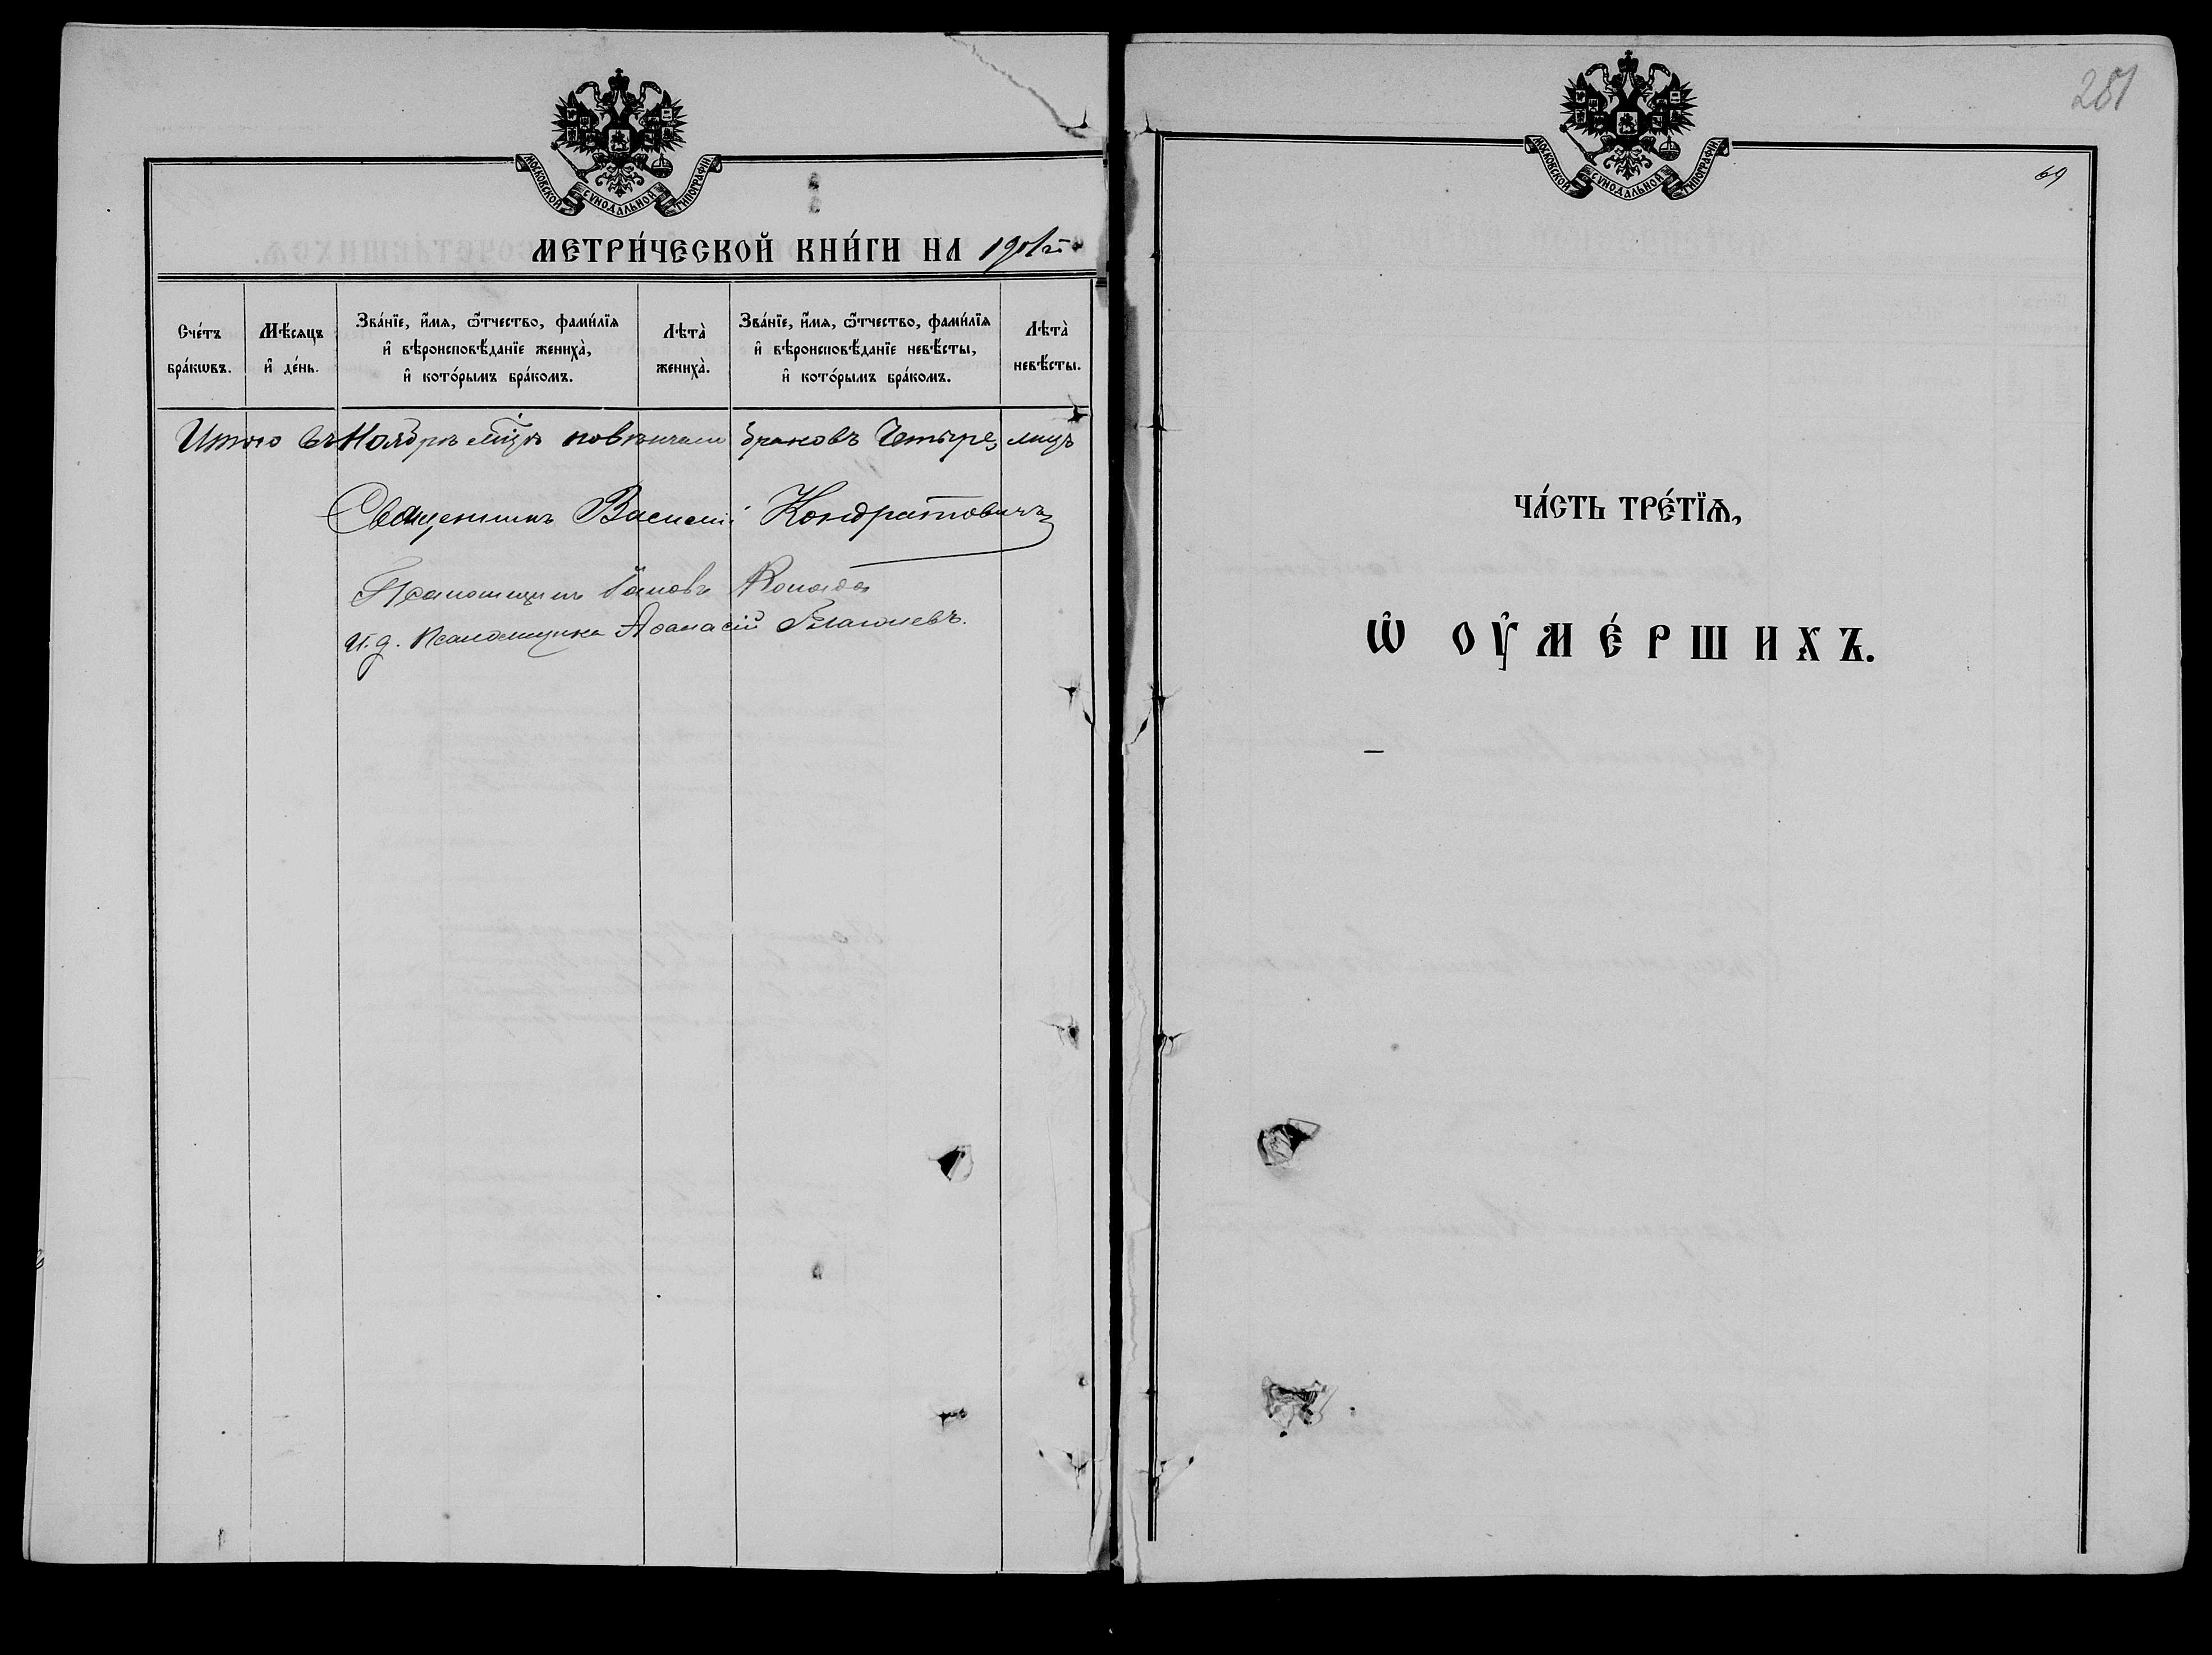 МОСКОВСКОЙ СѴНОДАЛЬНОЙ ТИПОГРАФІИ
МЕТРИ́ЧЕСКОЙ КНИ́ГИ НА 1901
Сче́тъ бра́кѡвъ.
Мѣ́сяцъ и҆ де́нь.
Зва́нїе, и҆́мѧ, ѻ҆́тчество, фами́лїѧ
и҆ вѣроисповѣ́данїе женихà,
и҆ кото́рымъ бра́комъ.
Лѣтà женихà.
Зва́нїе, и҆́мѧ, ѻ҆́тчество, фами́лїѧ
и҆ вѣроисповѣ́данїе невѣ́сты,
и҆ кото́рымъ бра́комъ.
Лѣтà невѣ́сты.
Итого въ Ноябрѣ мцѣ повѣнчано браковъ Четыре
Священникъ Василій Кондратовичъ
Псаломщикъ
И. д. Псаломщика Аѳанасій
281
МОСКОВСКОЙ СѴНОДАЛЬНОЙ ТИПОГРАФІИ
69
ЧА́СТЬ ТРЕ́ТЇѦ,
Ѡ҆ ОУ҆МЕ́РШИХЪ.